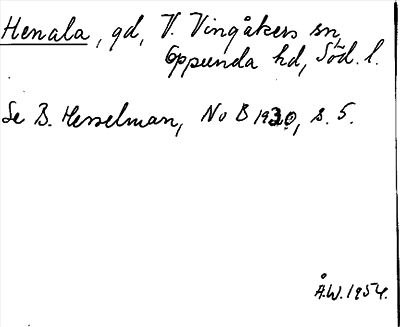 Henala, gd, V. Vingåkers sn,
Oppunda hd, Söd. l.
Se B. Hesselman, No B 1930, s. 5.
Å.W. 1954.